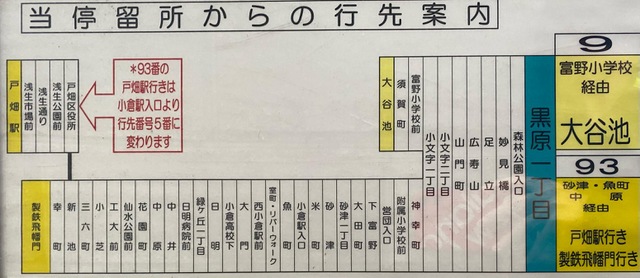 当停留所からの行先案内
9
富野小学校
経由
大谷池
93
砂津・魚町
中原
経由
戸畑駅行き
製鉄飛幡門行き
黒原一丁目
森林公園入口
妙見橋
足立
広寿山
山門町
小文字二丁目
小文字一丁目
富野小学校前
須賀町
大谷池
神幸町
附属小学校前
営団入口
下富野
太田町
砂津一丁目
砂津
米町
小倉駅入口
魚町
室町・リバーウォーク
西小倉駅前
大門
小倉高校下
日明
緑ヶ丘一丁目
日明病院前
中井
中原
花園町
仙水公園前
工大前
小芝
三六町
新池
幸町
製鉄飛幡門
*93番の
戸畑駅行きは
小倉駅入口より
行先番号5番に
変わります
戸畑区役所
浅生公園前
浅生通り
浅生市場前
戸畑駅